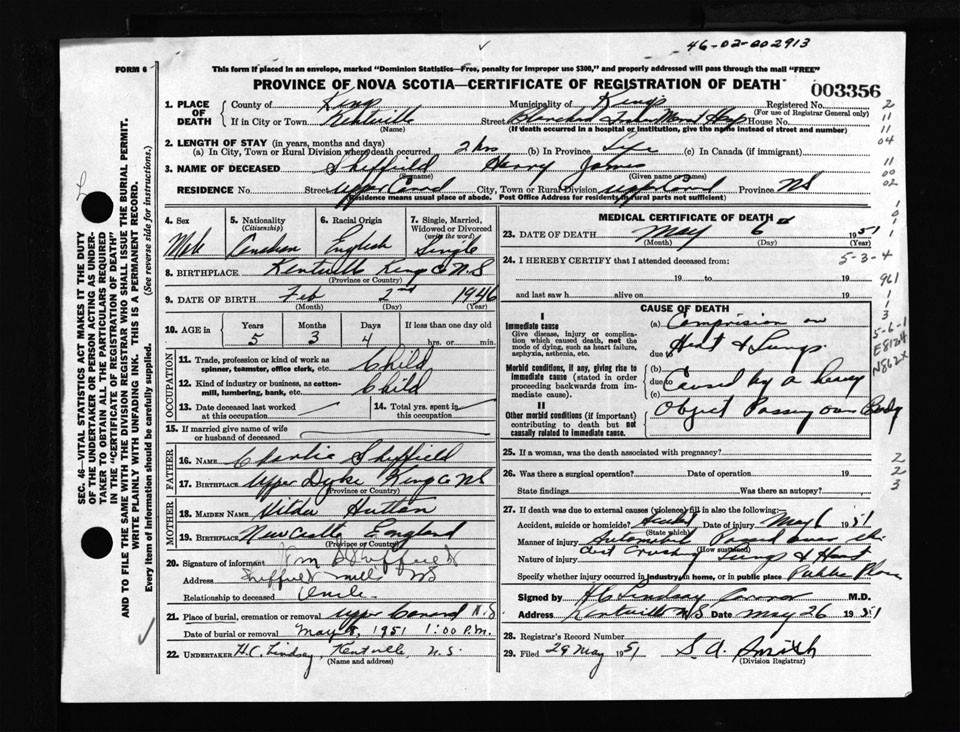 46-02-002913
FORM 6
This form if placed in an envelope, marked "Dominion Statistics—Free, penalty for improper use $300," and properly addressed will pass through the mail "FREE"
PROVINCE OF NOVA SCOTIA—CERTIFICATE OF REGISTRATION OF DEATH
003356
1. PLACE OF DEATH
County of Kings Municipality of Kings Registered No.
(For use of Registrar General only)
If in City or Town Kentville Street House No.
(Name) (If death occurred in a hospital or institution, give the name instead of street and number)
2. LENGTH OF STAY (in years, months and days)
(a) In City, Town or Rural Division where death occurred 2 hrs (b) In Province Life (c) In Canada (if immigrant)
3. NAME OF DECEASED Sheffield Harry James
(Surname) (Given name or names)
RESIDENCE No. Street Upper Canard City, Town or Rural Division Upper Canard Province NS
(Residence means usual place of abode. Post Office Address for residents in rural parts not sufficient)
4. Sex Male
5. Nationality (Citizenship) Canadian
6. Racial Origin English
7. Single, Married, Widowed or Divorced (write the word) Single
8. BIRTHPLACE Kentville Kings Co N.S
(Province or Country)
9. DATE OF BIRTH Feb 2nd 1946
(Month) (Day) (Year)
10. AGE in Years Months Days If less than one day old
5 3 4 hrs. or min.
OCCUPATION
11. Trade, profession or kind of work as spinner, teamster, office clerk, etc. Child
12. Kind of industry or business, as cotton-mill, lumbering, bank, etc. Child
13. Date deceased last worked at this occupation
14. Total yrs. spent in this occupation
15. If married give name of wife or husband of deceased
FATHER
16. NAME Charlie Sheffield
17. BIRTHPLACE Upper Dyke Kings Co NS
(Province or Country)
MOTHER
18. MAIDEN NAME Hilda Hutton
19. BIRTHPLACE Newcastle England
(Province or Country)
20. Signature of informant Sheffield
Address Sheffield Mill NS
Relationship to deceased Uncle
21. Place of burial, cremation or removal Upper Canard N.S.
Date of burial or removal May 8, 1951 1:00 P.M.
22. UNDERTAKER H.C. Lindsay, Kentville, N.S.
(Name and address)
MEDICAL CERTIFICATE OF DEATH
23. DATE OF DEATH May 6 1951
(Month) (Day) (Year)
24. I HEREBY CERTIFY that I attended deceased from:
19 to 19
and last saw h alive on 19
CAUSE OF DEATH
I
Immediate cause
Give disease, injury or complication which caused death, not the mode of dying, such as heart failure, asphyxia, asthenia, etc.
Morbid conditions, if any, giving rise to immediate cause (stated in order proceeding backwards from immediate cause).
II
Other morbid conditions (if important) contributing to death but not causally related to immediate cause.
(a) Compression on
due to Heart & Lungs
(b)
due to Caused by a heavy
(c) Object Passing over Body
25. If a woman, was the death associated with pregnancy?
26. Was there a surgical operation? Date of operation 19
State findings Was there an autopsy?
27. If death was due to external causes (violence) fill in also the following:—
Accident, suicide or homicide? Date of injury May 6 1951
(State which)
Manner of injury Automobile Passed over
(How sustained)
Nature of injury Chest Crushed Lungs & Heart
Specify whether injury occurred in industry, in home, or in public place Public Place
Signed by M.D.
Address Kentville N/S Date May 26 1951
28. Registrar's Record Number
29. Filed 29 May 1951 S. A. Smith
(Division Registrar)
2
11
11
04
11
00
02
5-3-4
961
5-6-1
E8124
N862X
2
2
3
SEC. 46—VITAL STATISTICS ACT MAKES IT THE DUTY
OF THE UNDERTAKER OR PERSON ACTING AS UNDER-
TAKER TO OBTAIN ALL THE PARTICULARS REQUIRED
IN THE "CERTIFICATE OF REGISTRATION OF DEATH"
AND TO FILE THE SAME WITH THE DIVISION REGISTRAR WHO SHALL ISSUE THE BURIAL PERMIT.
WRITE PLAINLY WITH UNFADING INK. THIS IS A PERMANENT RECORD.
Every item of information should be carefully supplied. (See reverse side for instructions.)